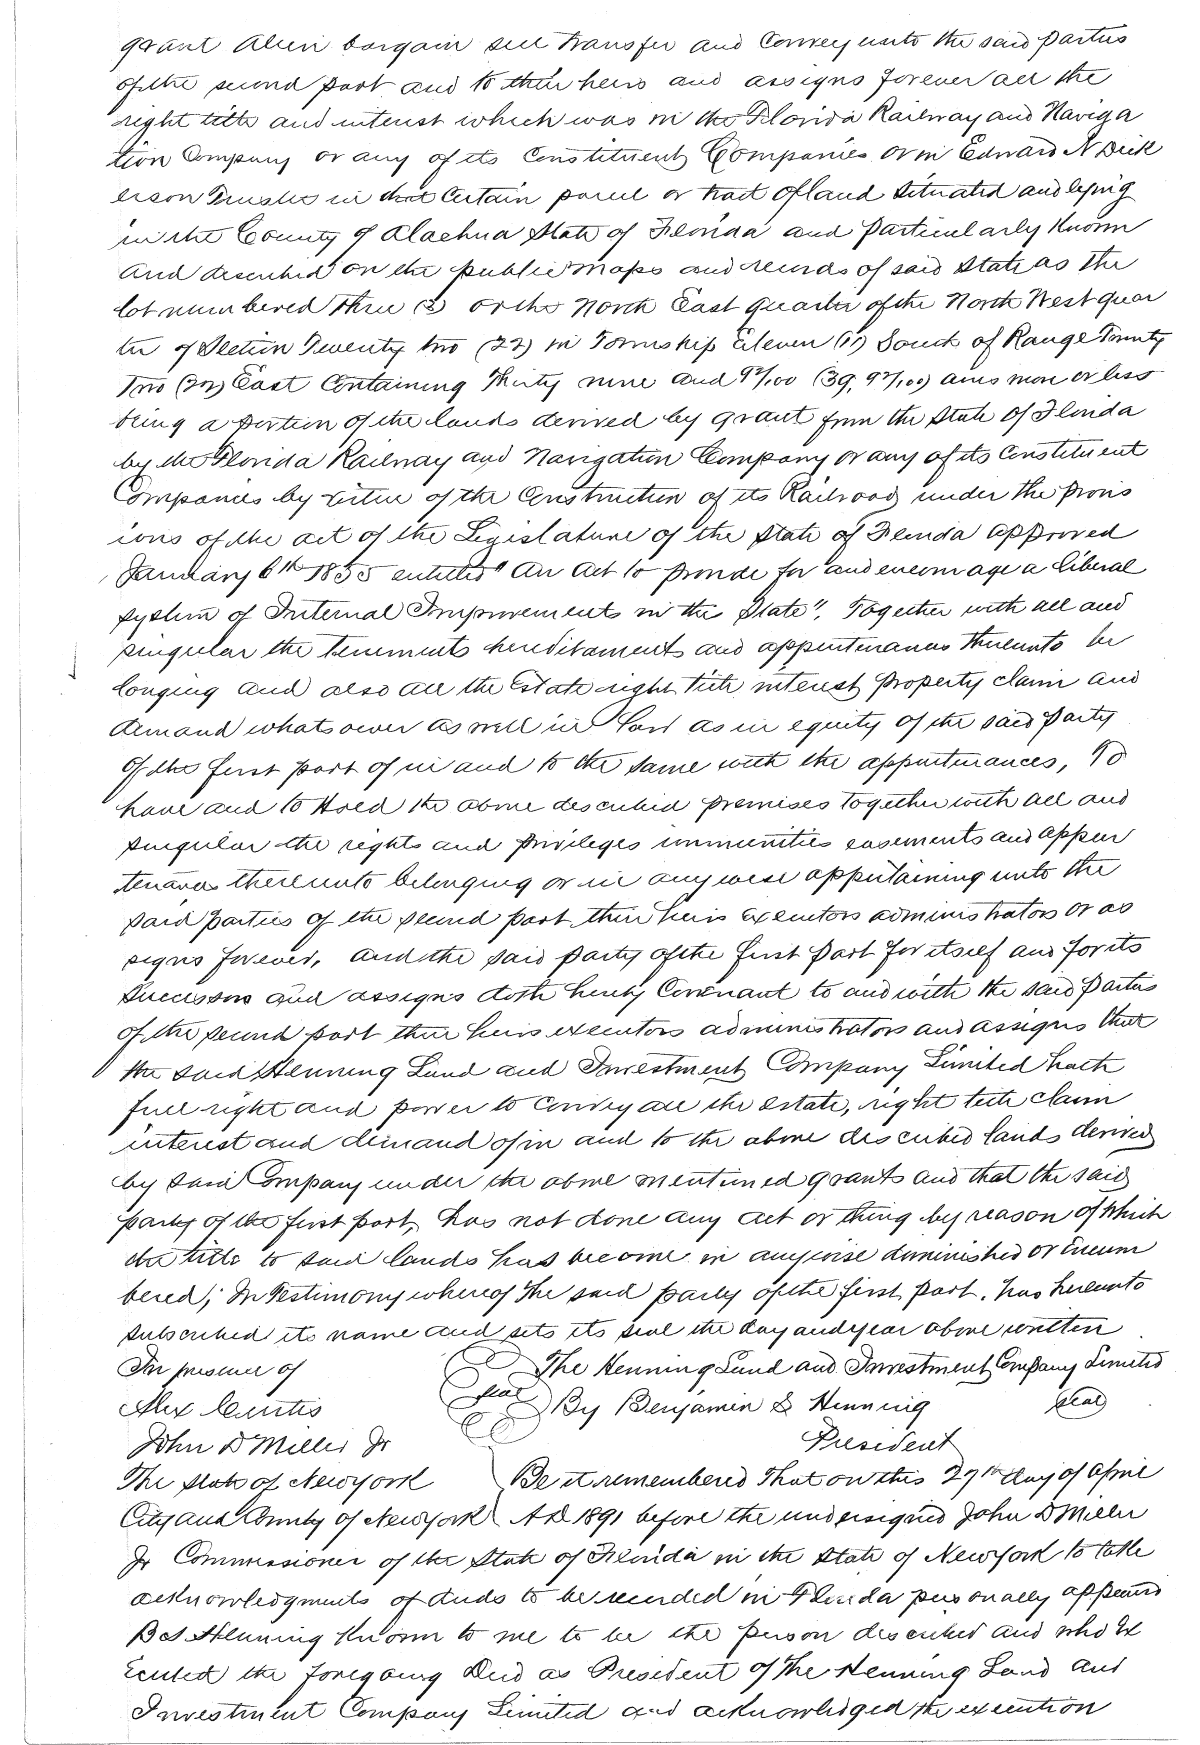 grant Alien bargain sell transfer and Convey unto the said parties
of the second part and to their heirs and assigns forever all the
right title and interest which was in the Florida Railway and Naviga
tion Company or any of its Constituent Companies or in Edward N Dick
erson Trustee in that Certain parcel or tract of land situated and lying
in the County of Alachua State of Florida and Particularly Known
and described on the public maps and records of said State as the
lot numbered three (3) or the North East quarter of the North West quar
ter of Section Twenty two (22) in Township Eleven (11) South of Range Twenty
Two (22) East Containing Thirty nine and 92/100 (39, 92/100) acres more or less
being a portion of the lands derived by grant from the State of Florida
by the Florida Railway and Navigation Company or any of its Constituent
Companies by virtue of the Construction of its Railroad under the provis
ions of the act of the Legislature of the State of Florida approved
January 6th 1855 entitled "An Act to provide for and encourage a liberal
system of Internal Improvements in the State". Together with all and
singular the tenements hereditaments and appurtenances thereunto be
longing and also all the Estate right title interest property claim and
demand whatsoever as well in Law as in equity of the said Party
of the first part of in and to the same with the appurtenances, To
have and to Hold the above described premises together with all and
singular the rights and privileges immunities easements and appur
tenances thereunto belonging or in any wise appertaining unto the
said parties of the second part their heirs executors administrators or as
signs forever, and the said party of the first part for itself and for its
successors and assigns doth hereby Covenant to and with the said parties
of the second part their heirs executors administrators and assigns that
the said Henning Land and Investment Company Limited hath
full right and power to convey all the estate, right title claim
interest and demand of in and to the above described lands derived
by said Company under the above mentioned grants and that the said
party of the first part, has not done any act or thing by reason of which
the title to said lands has become in any wise diminished or incum
bered; In Testimony whereof The said party of the first part, has hereunto
subscribed its name and sets its seal the day and year above written
In presence of The Henning Land and Investment Company Limited
Alex Curtis seal By Benjamin S Henning seal
John D Miller Jr President
The State of New York Be it remembered That on this 27th day of April
City and County of New York A D 1891 before the undersigned John D Miller
Jr Commissioner of the State of Florida in the State of New York to take
acknowledgments of deeds to be recorded in Florida personally appeared
B S Henning Known to me to be the person described and who Ex
ecuted the foregoing Deed as President of The Henning Land and
Investment Company Limited and acknowledged the execution